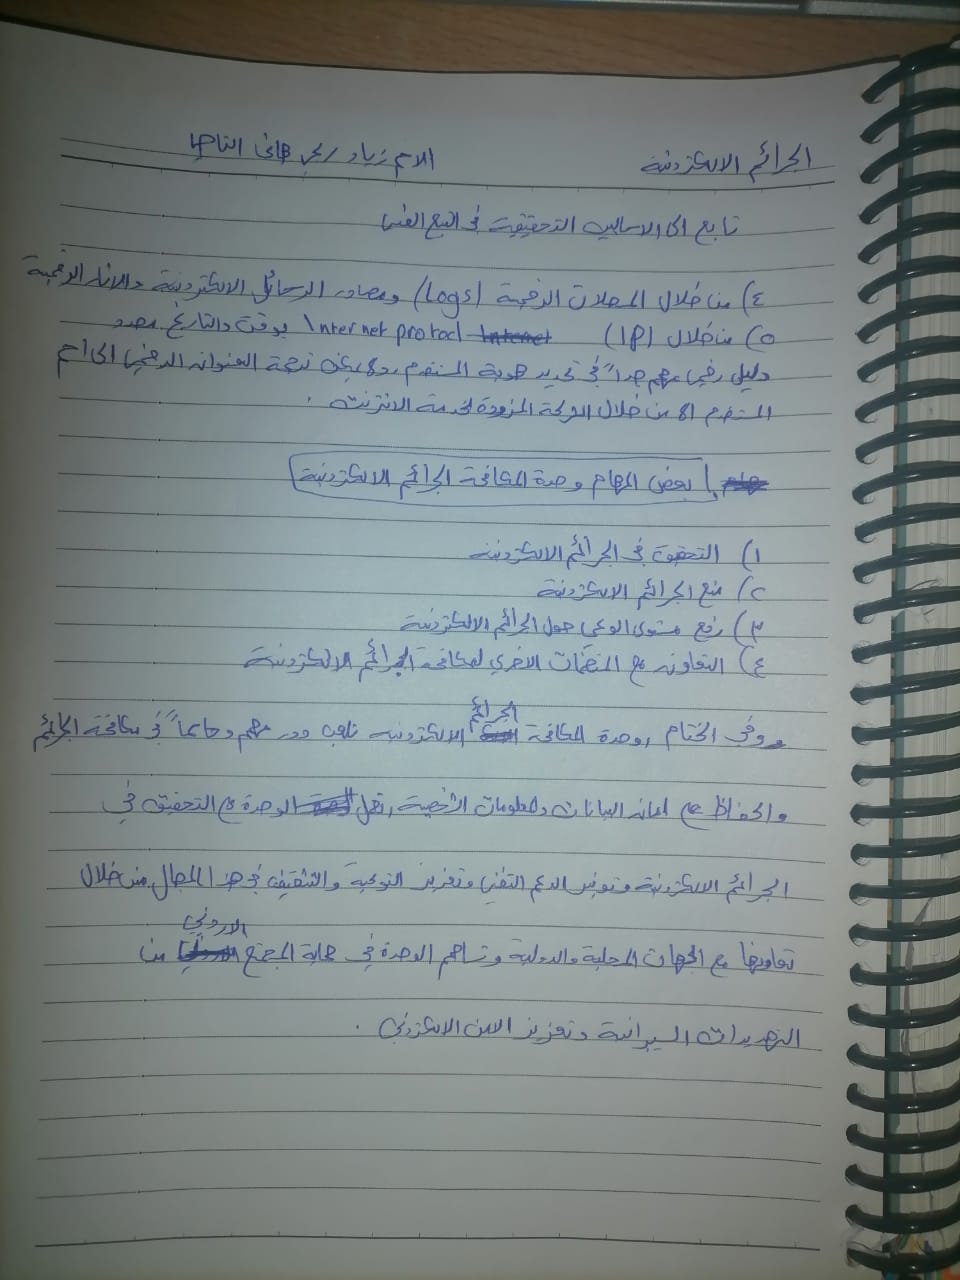 الجرائم الالكترونية الاسم زياد يحيى هاني
تابع الى الاساليب التحقيقية في التتبع الفني
٤) من خلال السجلات الرقمية (Logs) ومصادر الرسائل الالكترونية والاثار الرقمية
٥) من خلال (IP) Internet protocol بوقت والتاريخ محدد
دليل رقمي مهم جداً في تحديد هوية المستخدم ولا يمكن ترجمة العنوان الرقمي الى اسم
المستخدم الا من خلال الشركة المزودة لخدمة الانترنت .
بعض المهام وحدة المكافحة الجرائم الالكترونية
١) التحقيق في الجرائم الالكترونية
٢) منع الجرائم الالكترونية
٣) رفع مستوى الوعي حول الجرائم الالكترونية
٤) التعاون مع المنظمات الاخرى لمكافحة الجرائم الالكترونية
وفي الختام وحدة المكافحة الجرائم الالكترونية تلعب دور مهم وحاسماً في مكافحة الجرائم
والحفاظ على امان البيانات والمعلومات الشخصية، تعمل الوحدة مع التحقيق في
الجرائم الالكترونية وتوفير الدعم التقني وتعزيز التوعية والتثقيف في هذا المجال من خلال
تعاونها مع الجهات المحلية والدولية وتساهم الوحدة في حماية المجتمع الاردني من
التهديدات السيبرانية وتعزيز الامن الالكتروني .